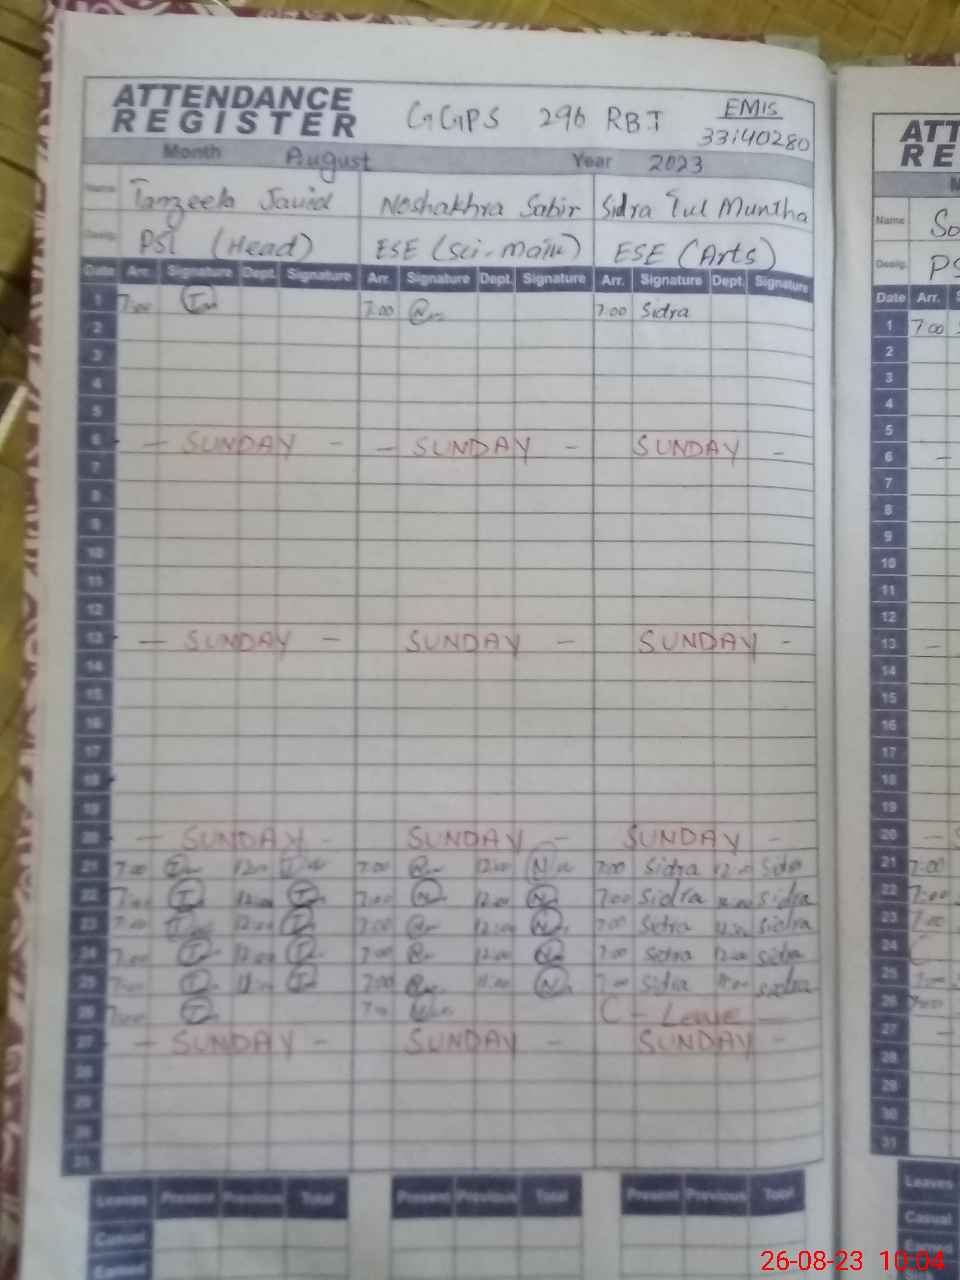 ATTENDANCE
REGISTER
GGPS 296 RBT
EMIS
33140280
Month August Year 2023
Name Tanzeela Javid Noshakhra Sabir Sidra Tul Muntha
Desig. PST (Head) ESE (Sci-Math) ESE (Arts)
Date Arr. Signature Dept. Signature Arr. Signature Dept. Signature Arr. Signature Dept. Signature
1 7:00 7:00 7:00 Sidra
2
3
4
5
6 - SUNDAY - - SUNDAY - SUNDAY -
7
8
9
10
11
12
13 - SUNDAY - SUNDAY - SUNDAY -
14
15
16
17
18
19
20 - SUNDAY - SUNDAY - SUNDAY -
21 7:00 12:00 7:00 12:00 N 7:00 Sidra 12:00 Sidra
22 7:00 12:00 7:00 12:00 7:00 Sidra 12:00 Sidra
23 7:00 12:00 7:00 12:00 7:00 Sidra 12:00 Sidra
24 7:00 12:00 7:00 12:00 7:00 Sidra 12:00 Sidra
25 7:00 11:00 7:00 11:00 7:00 Sidra 11:00 Sidra
26 7:00 7:00 C - Leave
27 - SUNDAY - SUNDAY - SUNDAY -
28
29
30
31
Leaves Present Previous Total Present Previous Total Present Previous Total
Casual
Earned
ATT
RE
M
Name So
Desig. PS
Date Arr. S
1 7:00
2
3
4
5
6 -
7
8
9
10
11
12
13 -
14
15
16
17
18
19
20 -
21 7:00
22 7:00
23 7:00
24 C
25 7:00
26 7:00
27 -
28
29
30
31
Leaves
Casual
Earned
26-08-23 10:04